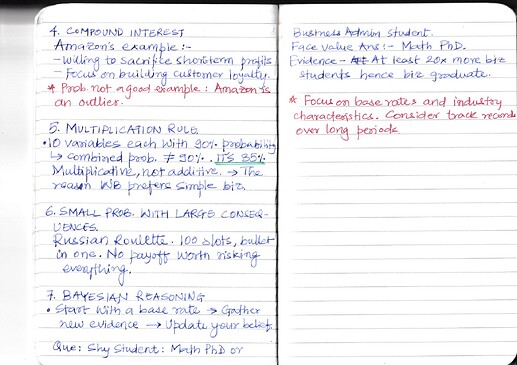 4. COMPOUND INTEREST
Amazon's example:-
- Willing to sacrifice short term profits
- Focus on building customer loyalty.
* Prob. not a good example: Amazon is
an outlier.
5. MULTIPLICATION RULE.
• 10 variables each with 90% probability
↳ combined prob. ≠ 90%. ITS 35%
Multiplicative, not additive. → The
reason WB prefers simple biz.
6. SMALL PROB. WITH LARGE CONSEQ-
UENCES.
Russian Roulette. 100 slots, bullet
in one. No payoff worth risking
everything.
7. BAYESIAN REASONING
• Start with a base rate → Gather
new evidence → Update your belief.
Que: Shy Student: Math PhD or
Business Admin student.
Face value Ans:- Math PhD.
Evidence - At least 20x more biz
students hence biz graduate.
* Focus on base rates and industry
characteristics. Consider track record
over long periods